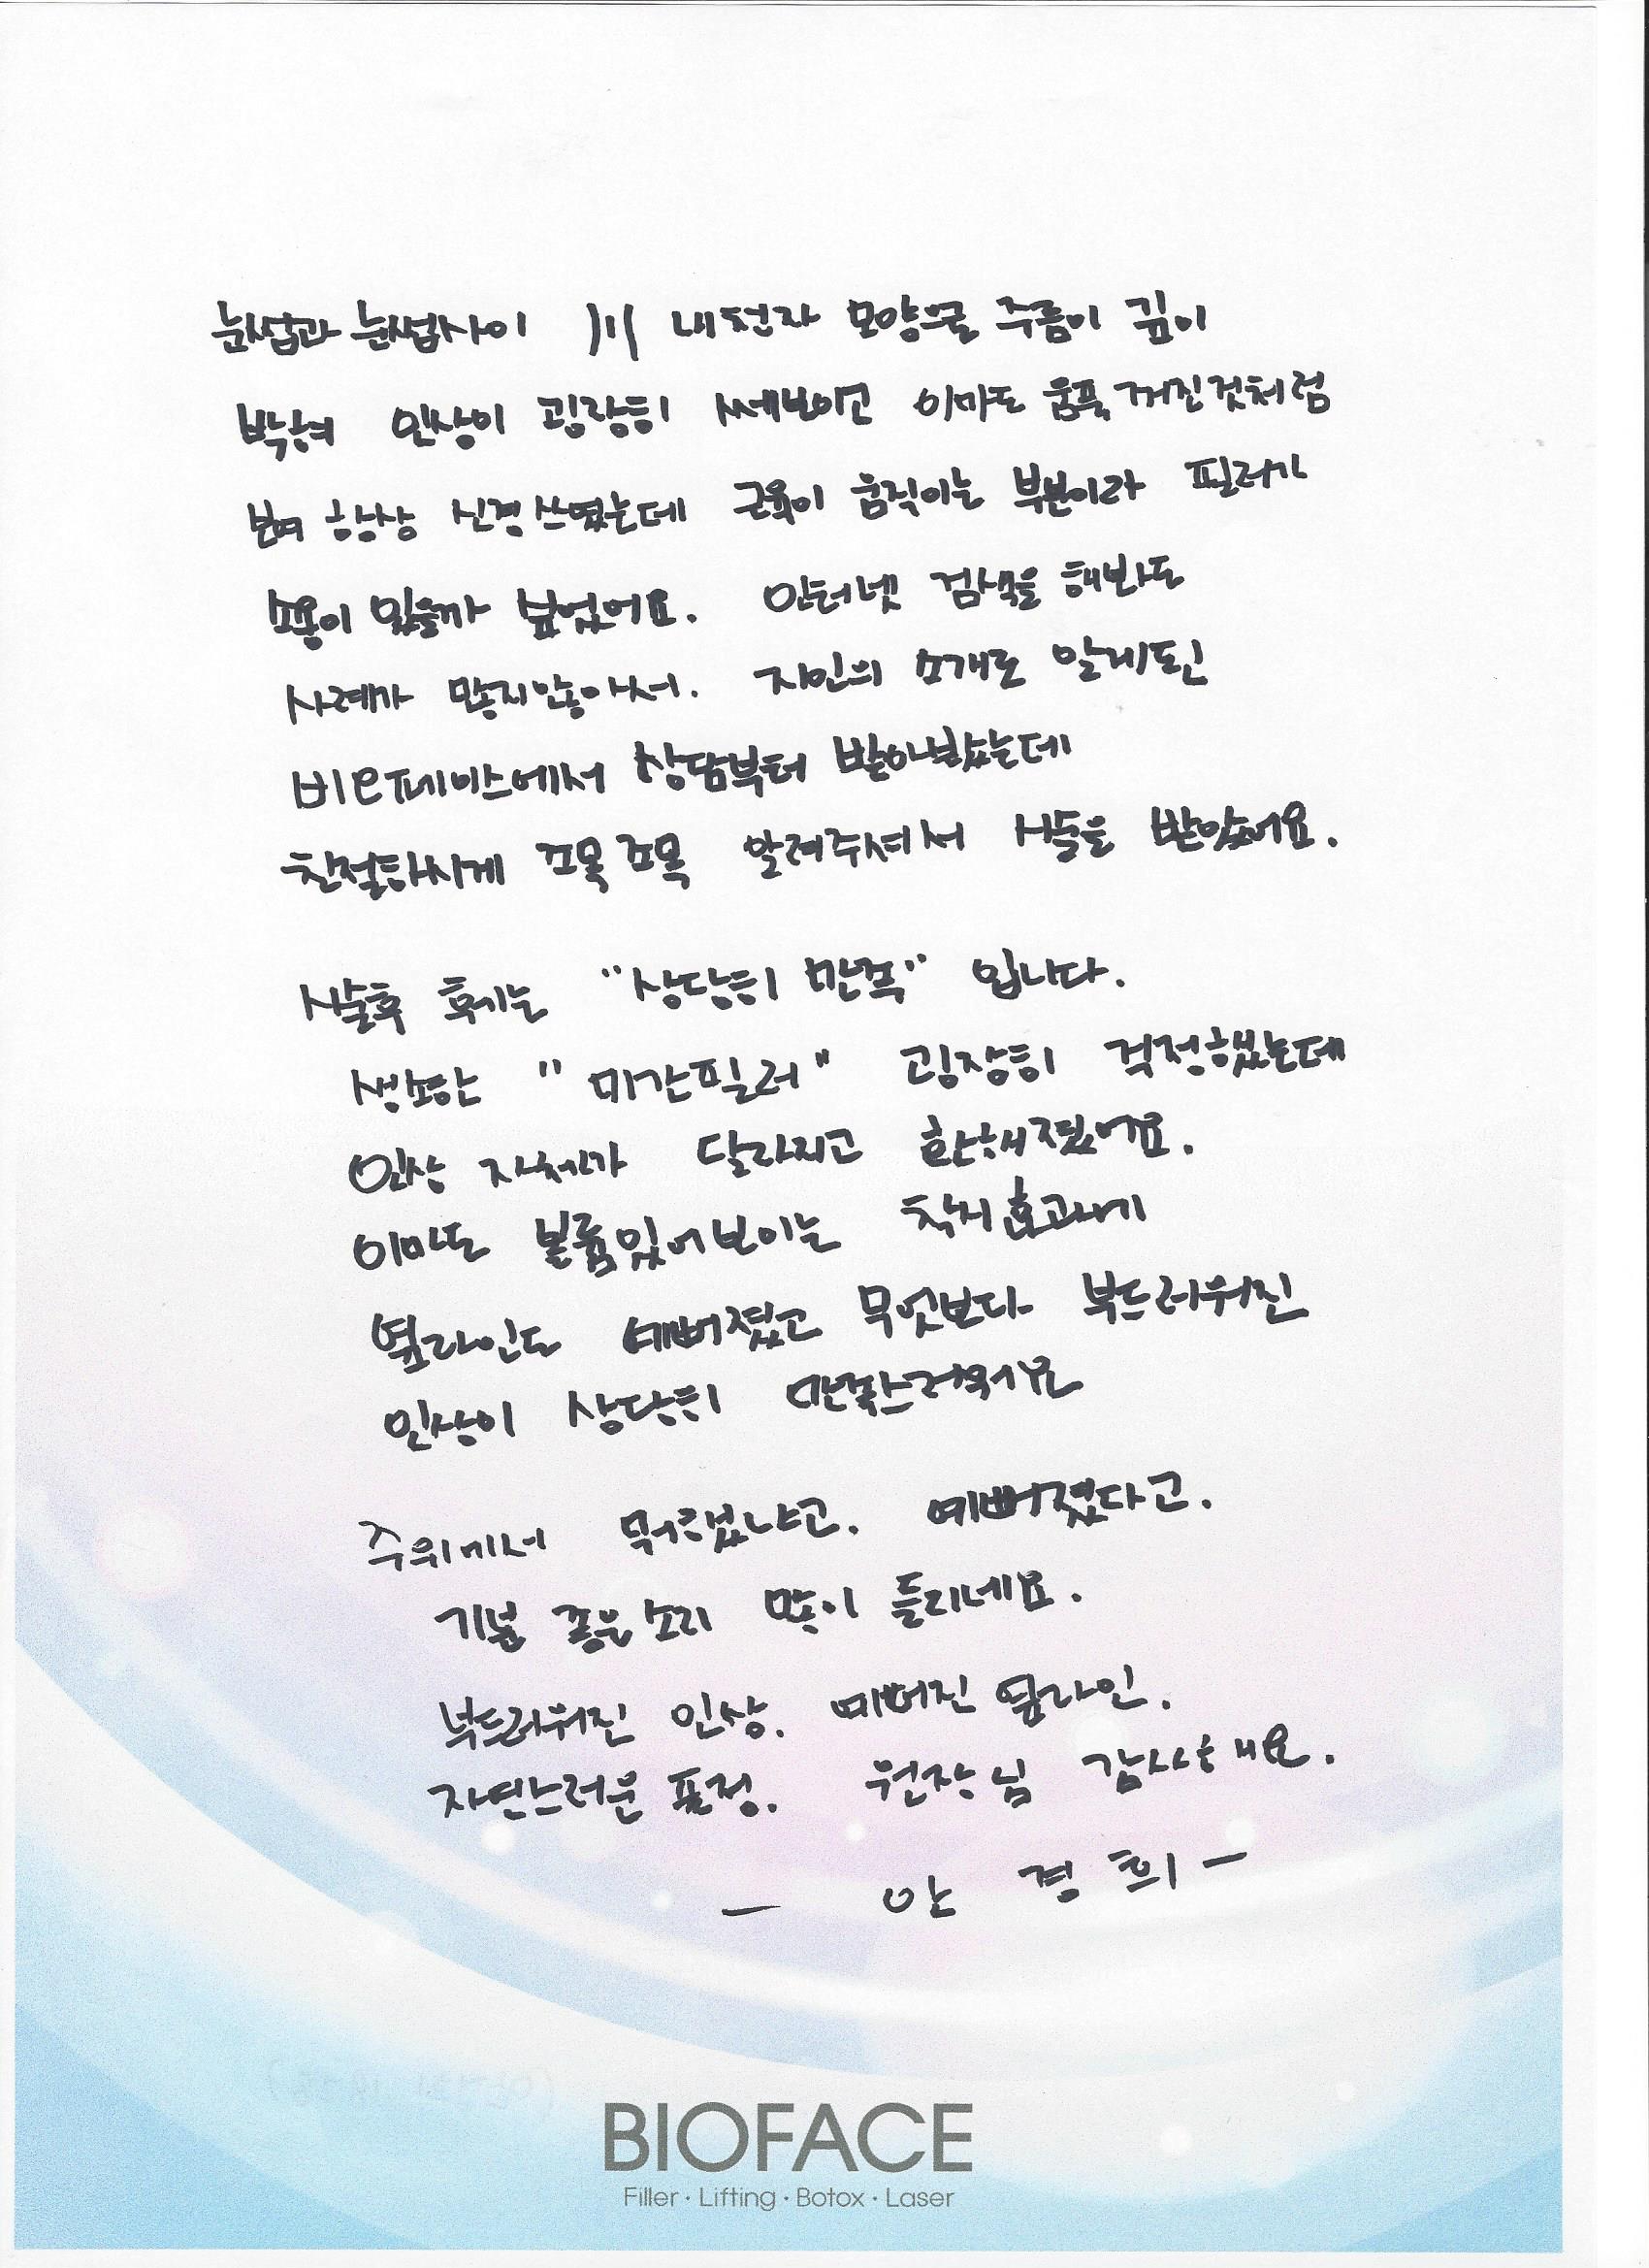 눈썹과 눈썹사이 川 내천자 모양으로 주름이 깊이
박혀 인상이 굉장히 쎄보이고 이마도 움푹 꺼진것처럼
보여 항상 신경쓰였는데 근육이 움직이는 부분이라 필러가
소용이 있을까 싶었어요. 인터넷 검색을 해봐도
사례가 많지않아서. 지인의 소개로 알게된
비오페이스에서 상담부터 받아봤는데
친절하시게 조목조목 알려주셔서 시술을 받았어요.
시술후 후기는 "상당히 만족" 입니다.
생소한 "미간필러" 굉장히 걱정했는데
인상 자체가 달라지고 환해졌어요.
이마도 볼륨있어보이는 착시효과에
옆라인도 예뻐졌고 무엇보다 부드러워진
인상이 상당히 만족스러워요
주위에서 뭐했냐고. 예뻐졌다고.
기분 좋은소리 많이 들리네요.
부드러워진 인상. 예뻐진 옆라인.
자연스러운 표정. 원장님 감사해요.
— 안 경 희 —
BIOFACE
Filler · Lifting · Botox · Laser